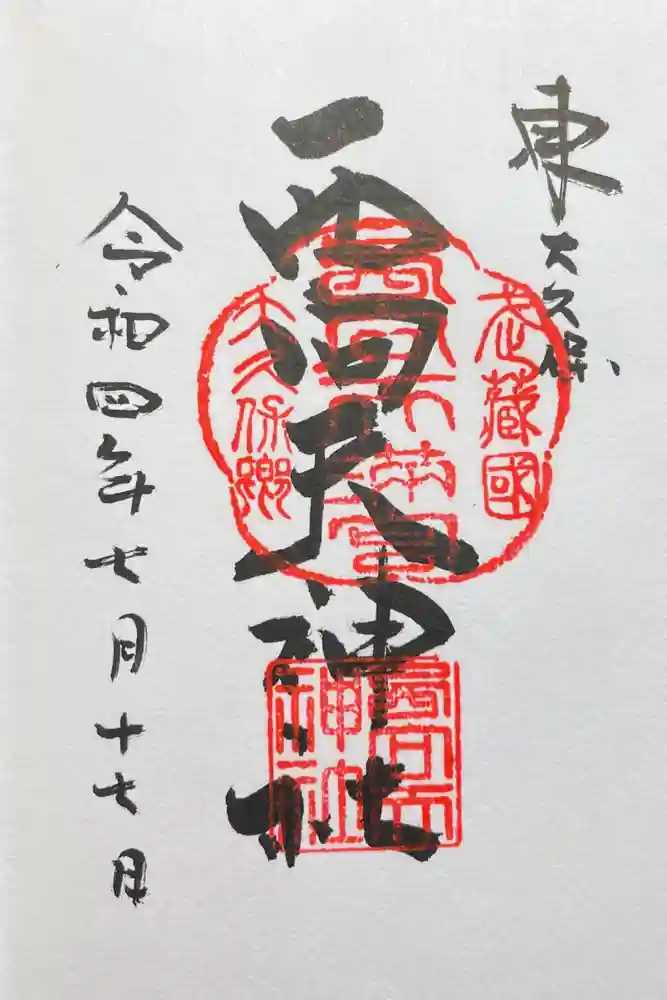 東大久保
西向天神社
令和四年七月十七日
武蔵國
大久保郷
西向天
神社